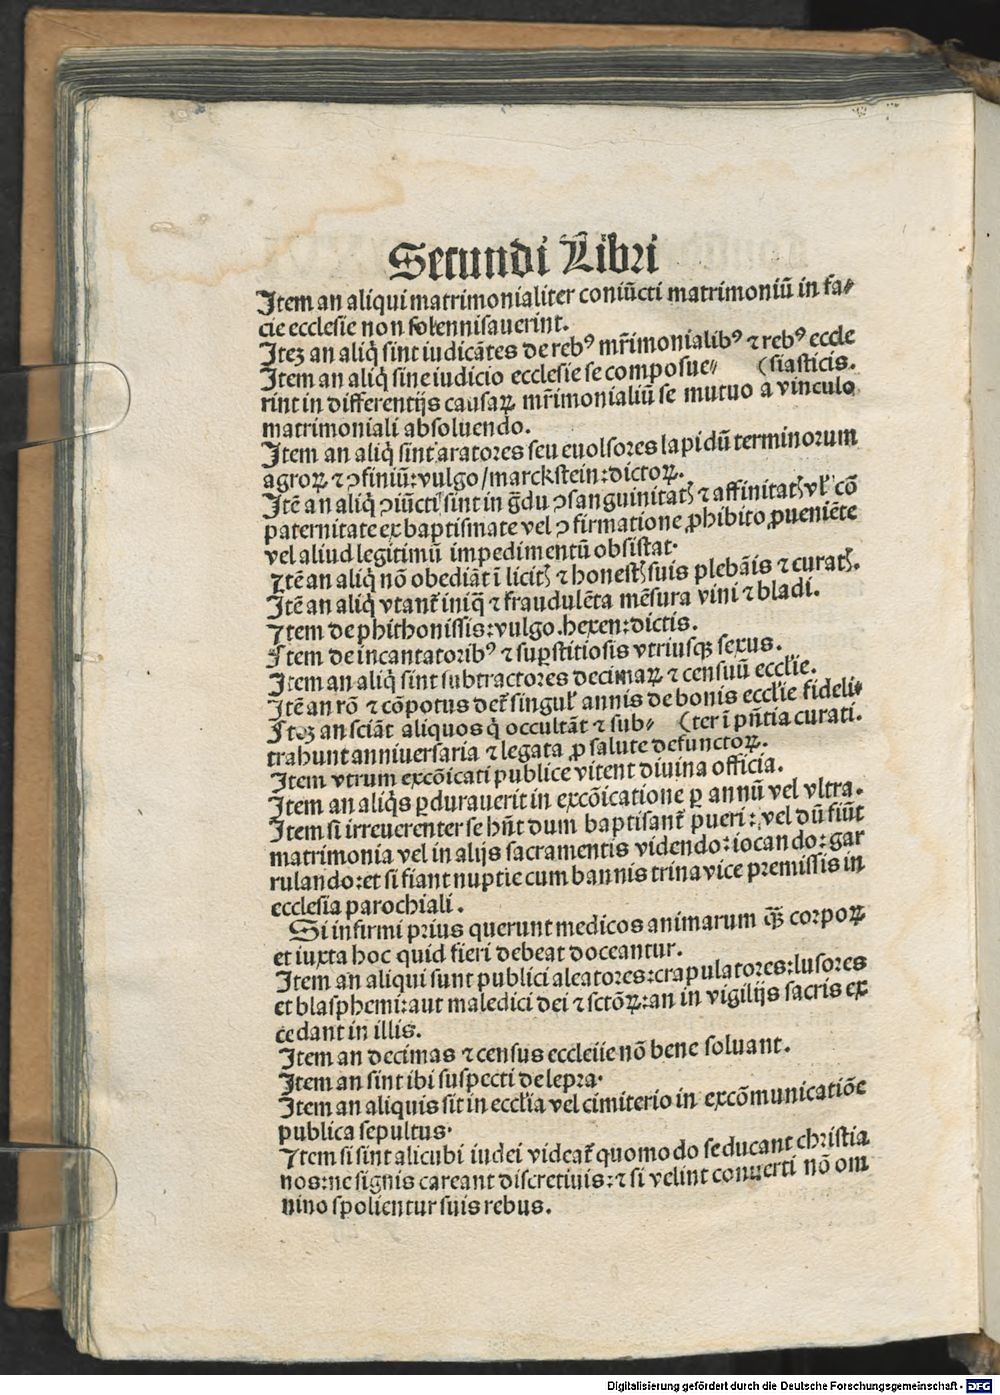 Secundi Libri
Item an aliqui matrimonialiter coniūcti matrimoniū in fa⸗
cie ecclesie non solennisauerint.
Iteꝫ an aliq̇ sint iudicātes de rebꝰ mr̄imonialibꝰ ⁊ rebꝰ eccle
Item an aliq̇ sine iudicio ecclesie se composue⸗ (siasticis.
rint in differentijs causaꝝ mr̄imonialiū se mutuo a vinculo
matrimoniali absoluendo.
Item an aliq̇ sint aratores seu euolsores lapidū terminorum
agroꝝ ⁊ ꝯfiniū: vulgo/marckstein: dictoꝝ.
Itē an aliq̇ ꝯiūcti sint in g̅du ꝯsanguinitatꝭ ⁊ affinitatꝭ vl̓ cō
paternitate ex baptismate vel ꝯfirmatione ꝓhibito ꝓueniēte
vel aliud legitimū impedimentū obsistat.
Itē an aliq̇ nō obediāt ī licitꝭ ⁊ honestꝭ suis plebāis ⁊ curatꝭ.
Itē an aliq̇ vtant̄ iniq̄ ⁊ fraudulēta mēsura vini ⁊ bladi.
Item de phithonissis: vulgo .hexen: dictis.
Item de incantatoribꝰ ⁊ suꝑstitiosis vtriusqꝫ sexus.
Item an aliq̇ sint subtractores decimaꝝ ⁊ censuū eccl̓ie.
Itē an rō ⁊ cōpotus det̄ singul̓ annis de bonis eccl̓ie fideli⸗
Iteꝫ an sciāt aliquos q̇ occultāt ⁊ sub⸗ (ter ī pn̄tia curati.
trahunt anniuersaria ⁊ legata ꝓ salute defunctoꝝ.
Item vtrum excōicati publice vitent diuina officia.
Item an aliq̇s ꝑdurauerit in excōicatione ꝑ annū vel vltra.
Item si irreuerenter se hn̄t dum baptisant̄ pueri: vel dū fiūt
matrimonia vel in alijs sacramentis videndo: iocando: gar
rulando: et si fiant nuptie cum bannis trina vice premissis in
ecclesia parochiali.
Si infirmi prius querunt medicos animarum qꝫ̄ corpoꝝ
et iuxta hoc quid fieri debeat doceantur.
Item an aliqui sunt publici aleatores: crapulatores: lusores
et blasphemi: aut maledici dei ⁊ sctōꝝ: an in vigilijs sacris ex
cedant in illis.
Item an decimas ⁊ census eccleiie nō bene soluant.
Item an sint ibi suspecti de lepra.
Item an aliquis sit in eccl̓ia vel cimiterio in excōmunicatiōe
publica sepultus.
Item si sint alicubi iudei videat̄ quomodo seducant christia
nos: ne signis careant discretiuis: ⁊ si velint conuerti nō om
nino spolientur suis rebus.
Digitalisierung gefördert durch die Deutsche Forschungsgemeinschaft - DFG